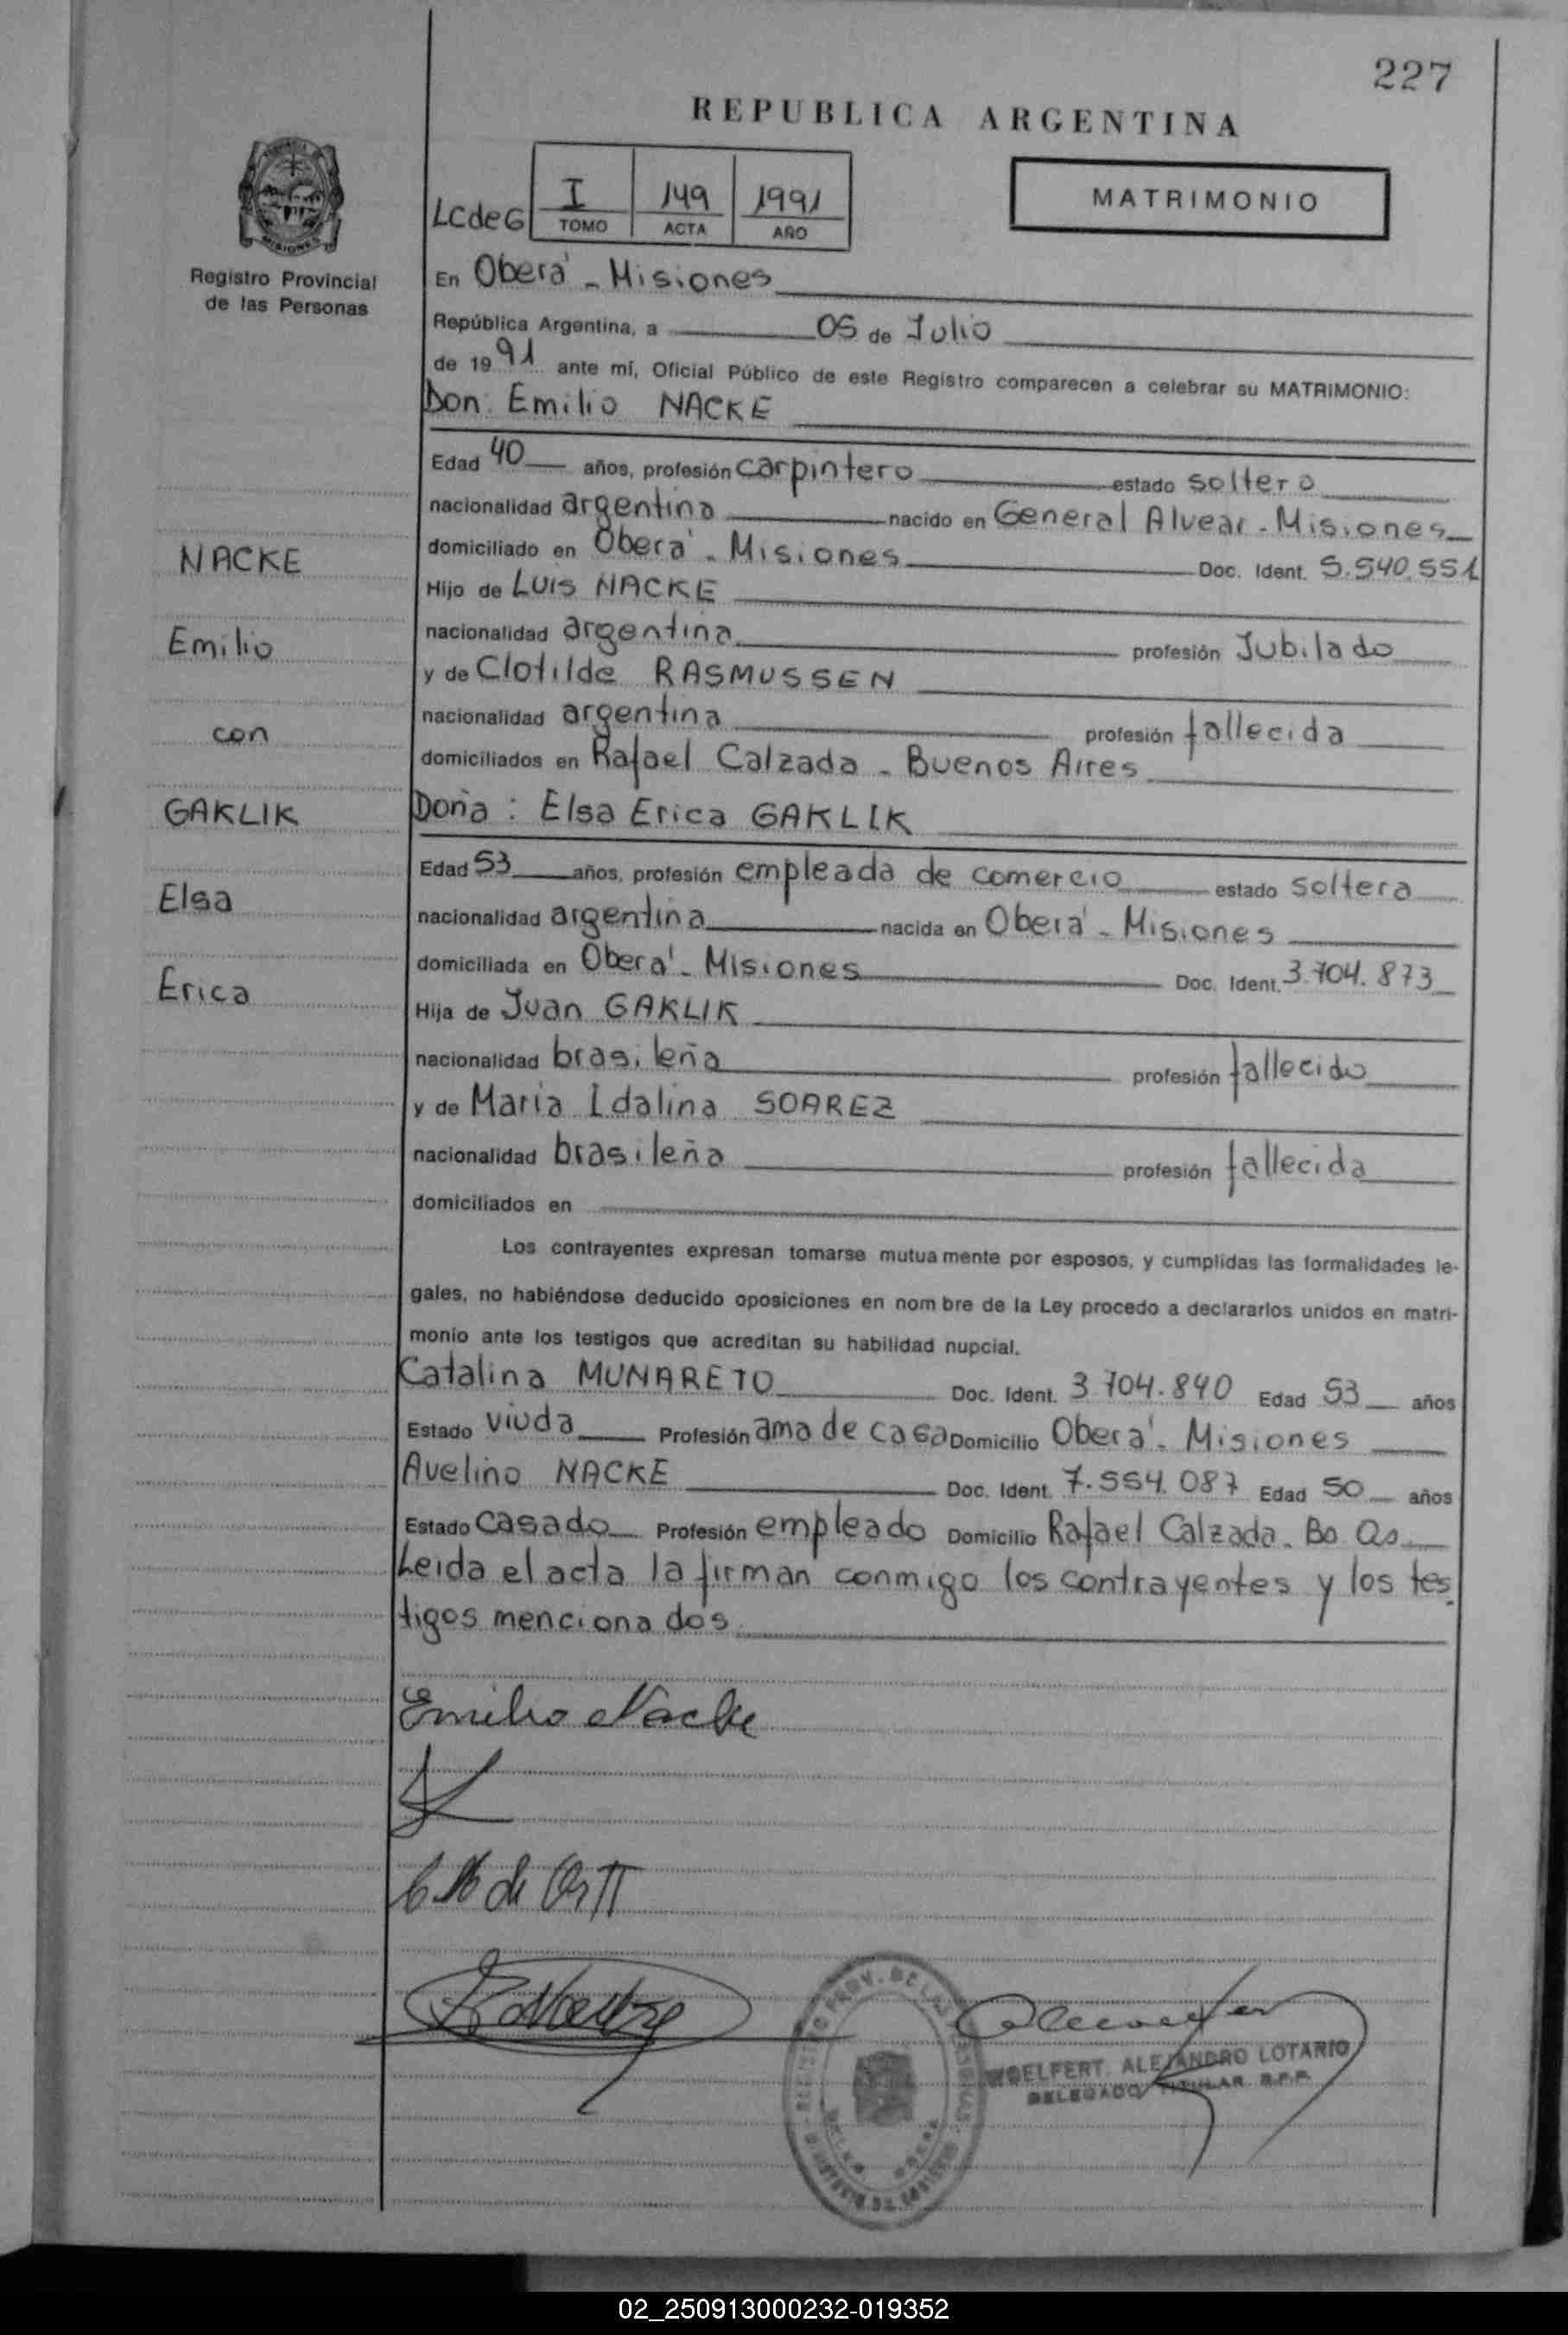 227
REPUBLICA ARGENTINA
MISIONES
Registro Provincial
de las Personas
LCdeG I TOMO 149 ACTA 1991 AÑO
MATRIMONIO
En Oberá - Misiones
República Argentina, a 05 de Julio
de 1991 ante mí, Oficial Público de este Registro comparecen a celebrar su MATRIMONIO:
Don: Emilio NACKE
Edad 40 años, profesión carpintero estado soltero
nacionalidad argentina nacido en General Alvear - Misiones
domiciliado en Oberá - Misiones Doc. Ident. 5.540.551
Hijo de Luis NACKE
nacionalidad argentina profesión Jubilado
y de Clotilde RASMUSSEN
nacionalidad argentina profesión fallecida
domiciliados en Rafael Calzada - Buenos Aires
Doña: Elsa Erica GAKLIK
Edad 53 años, profesión empleada de comercio estado soltera
nacionalidad argentina nacida en Oberá - Misiones
domiciliada en Oberá - Misiones Doc. Ident. 3.704.873
Hija de Juan GAKLIK
nacionalidad brasileña profesión fallecido
y de Maria Idalina SOAREZ
nacionalidad brasileña profesión fallecida
domiciliados en
NACKE
Emilio
con
GAKLIK
Elsa
Erica
Los contrayentes expresan tomarse mutuamente por esposos, y cumplidas las formalidades le-
gales, no habiéndose deducido oposiciones en nombre de la Ley procedo a declararlos unidos en matri-
monio ante los testigos que acreditan su habilidad nupcial.
Catalina MUNARETO Doc. Ident. 3.704.840 Edad 53 años
Estado viuda Profesión ama de casa Domicilio Oberá - Misiones
Avelino NACKE Doc. Ident. 7.554.087 Edad 50 años
Estado Casado Profesión empleado Domicilio Rafael Calzada. Bo As
Leida el acta la firman conmigo los contrayentes y los tes-
tigos mencionados.
Emilio Nacke
ALEJANDRO LOTARIO
DELEGADO TITULAR R.P.P.
02_250913000232-019352